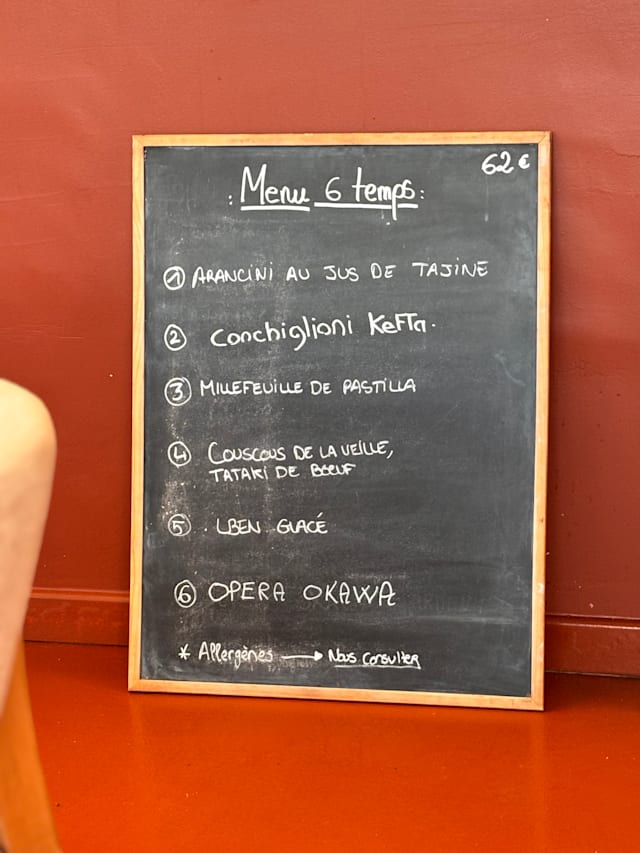 62 €
: Menu 6 temps :
① ARANCINI AU JUS DE TAJINE
② Conchiglioni KeFTa.
③ MILLEFEUILLE DE PASTILLA
④ COUSCOUS DE LA VEILLE,
TATAKI DE BŒUF
⑤ . LBEN GLACÉ
⑥ OPERA OKAWA
* Allergènes → Nous consulter